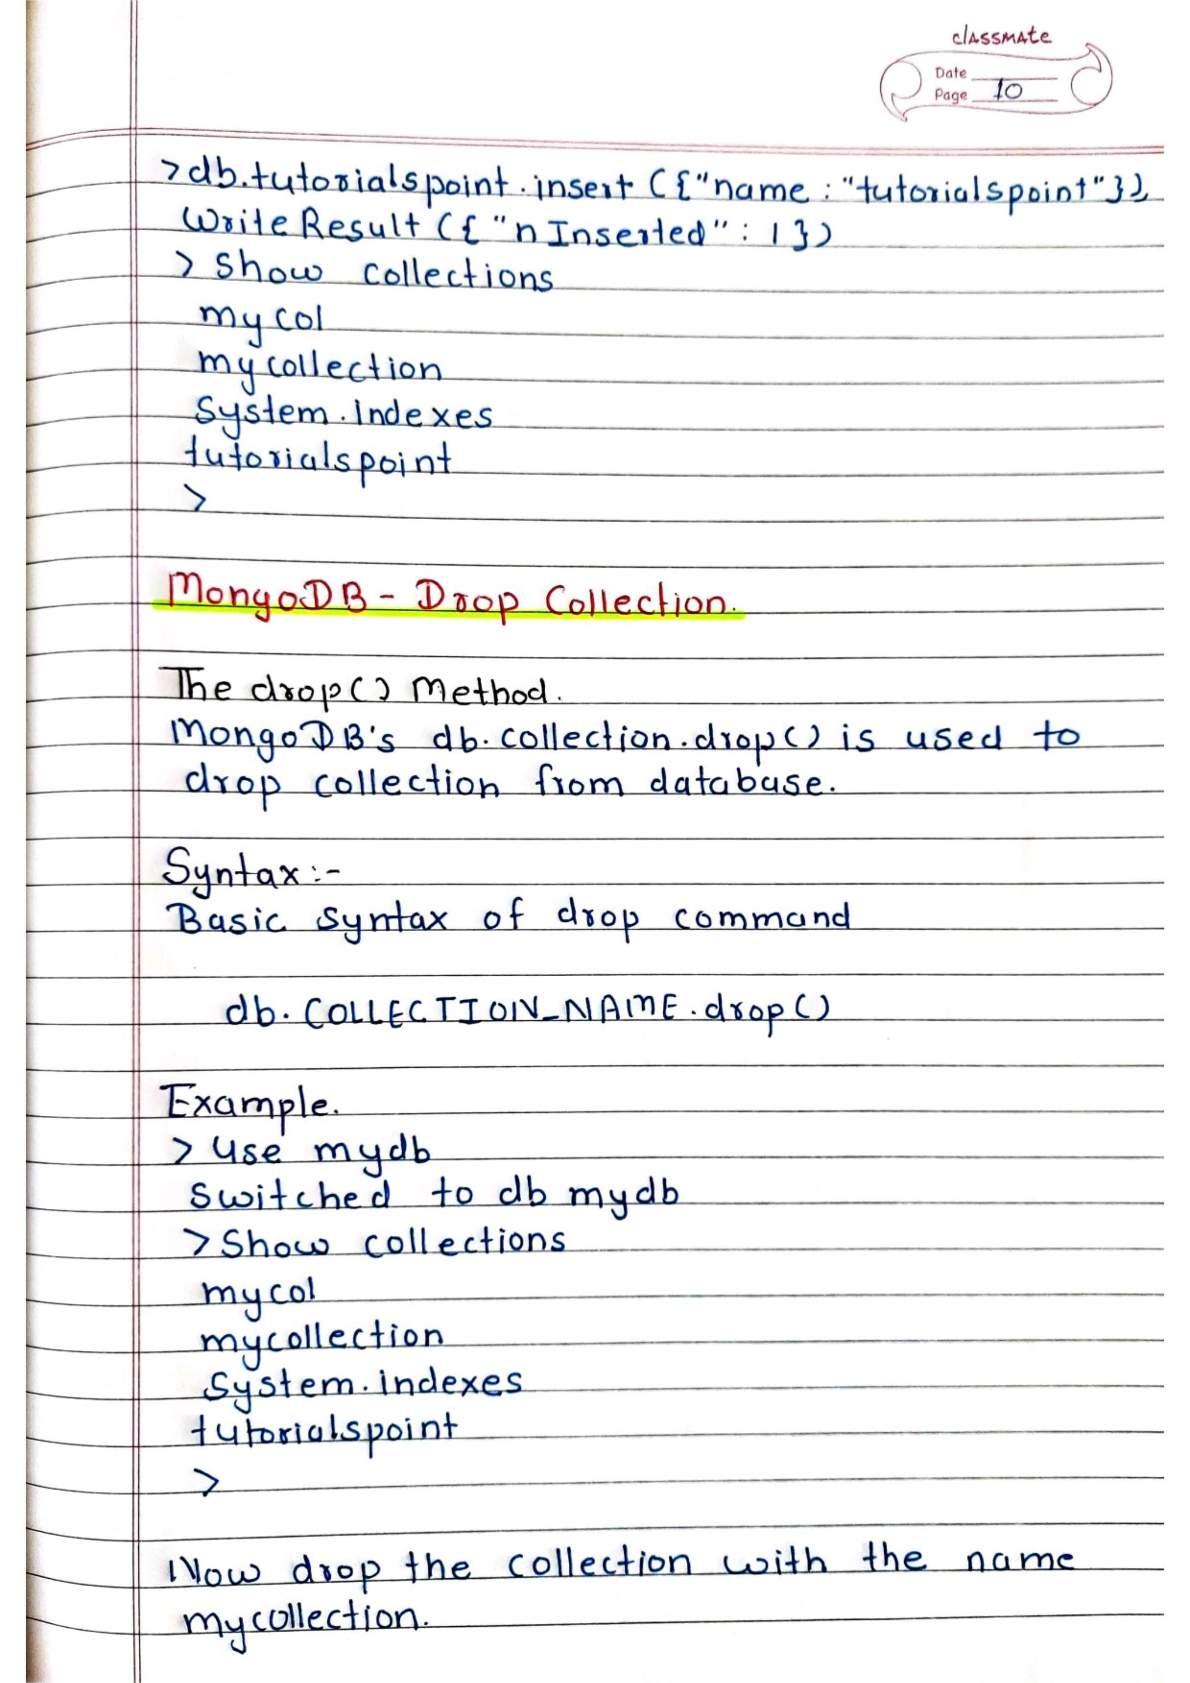 classmate
Date
Page 10
>db.tutorialspoint.insert({"name:"tutorialspoint"})
WriteResult({"nInserted": 1})
> Show collections
mycol
mycollection
System.indexes
tutorialspoint
>
MongoDB - Drop Collection.
The drop() Method.
MongoDB's db.collection.drop() is used to
drop collection from database.
Syntax:-
Basic syntax of drop command
db.COLLECTION_NAME.drop()
Example.
> Use mydb
Switched to db mydb
> Show collections
mycol
mycollection
System.indexes
tutorialspoint
>
Now drop the collection with the name
mycollection.